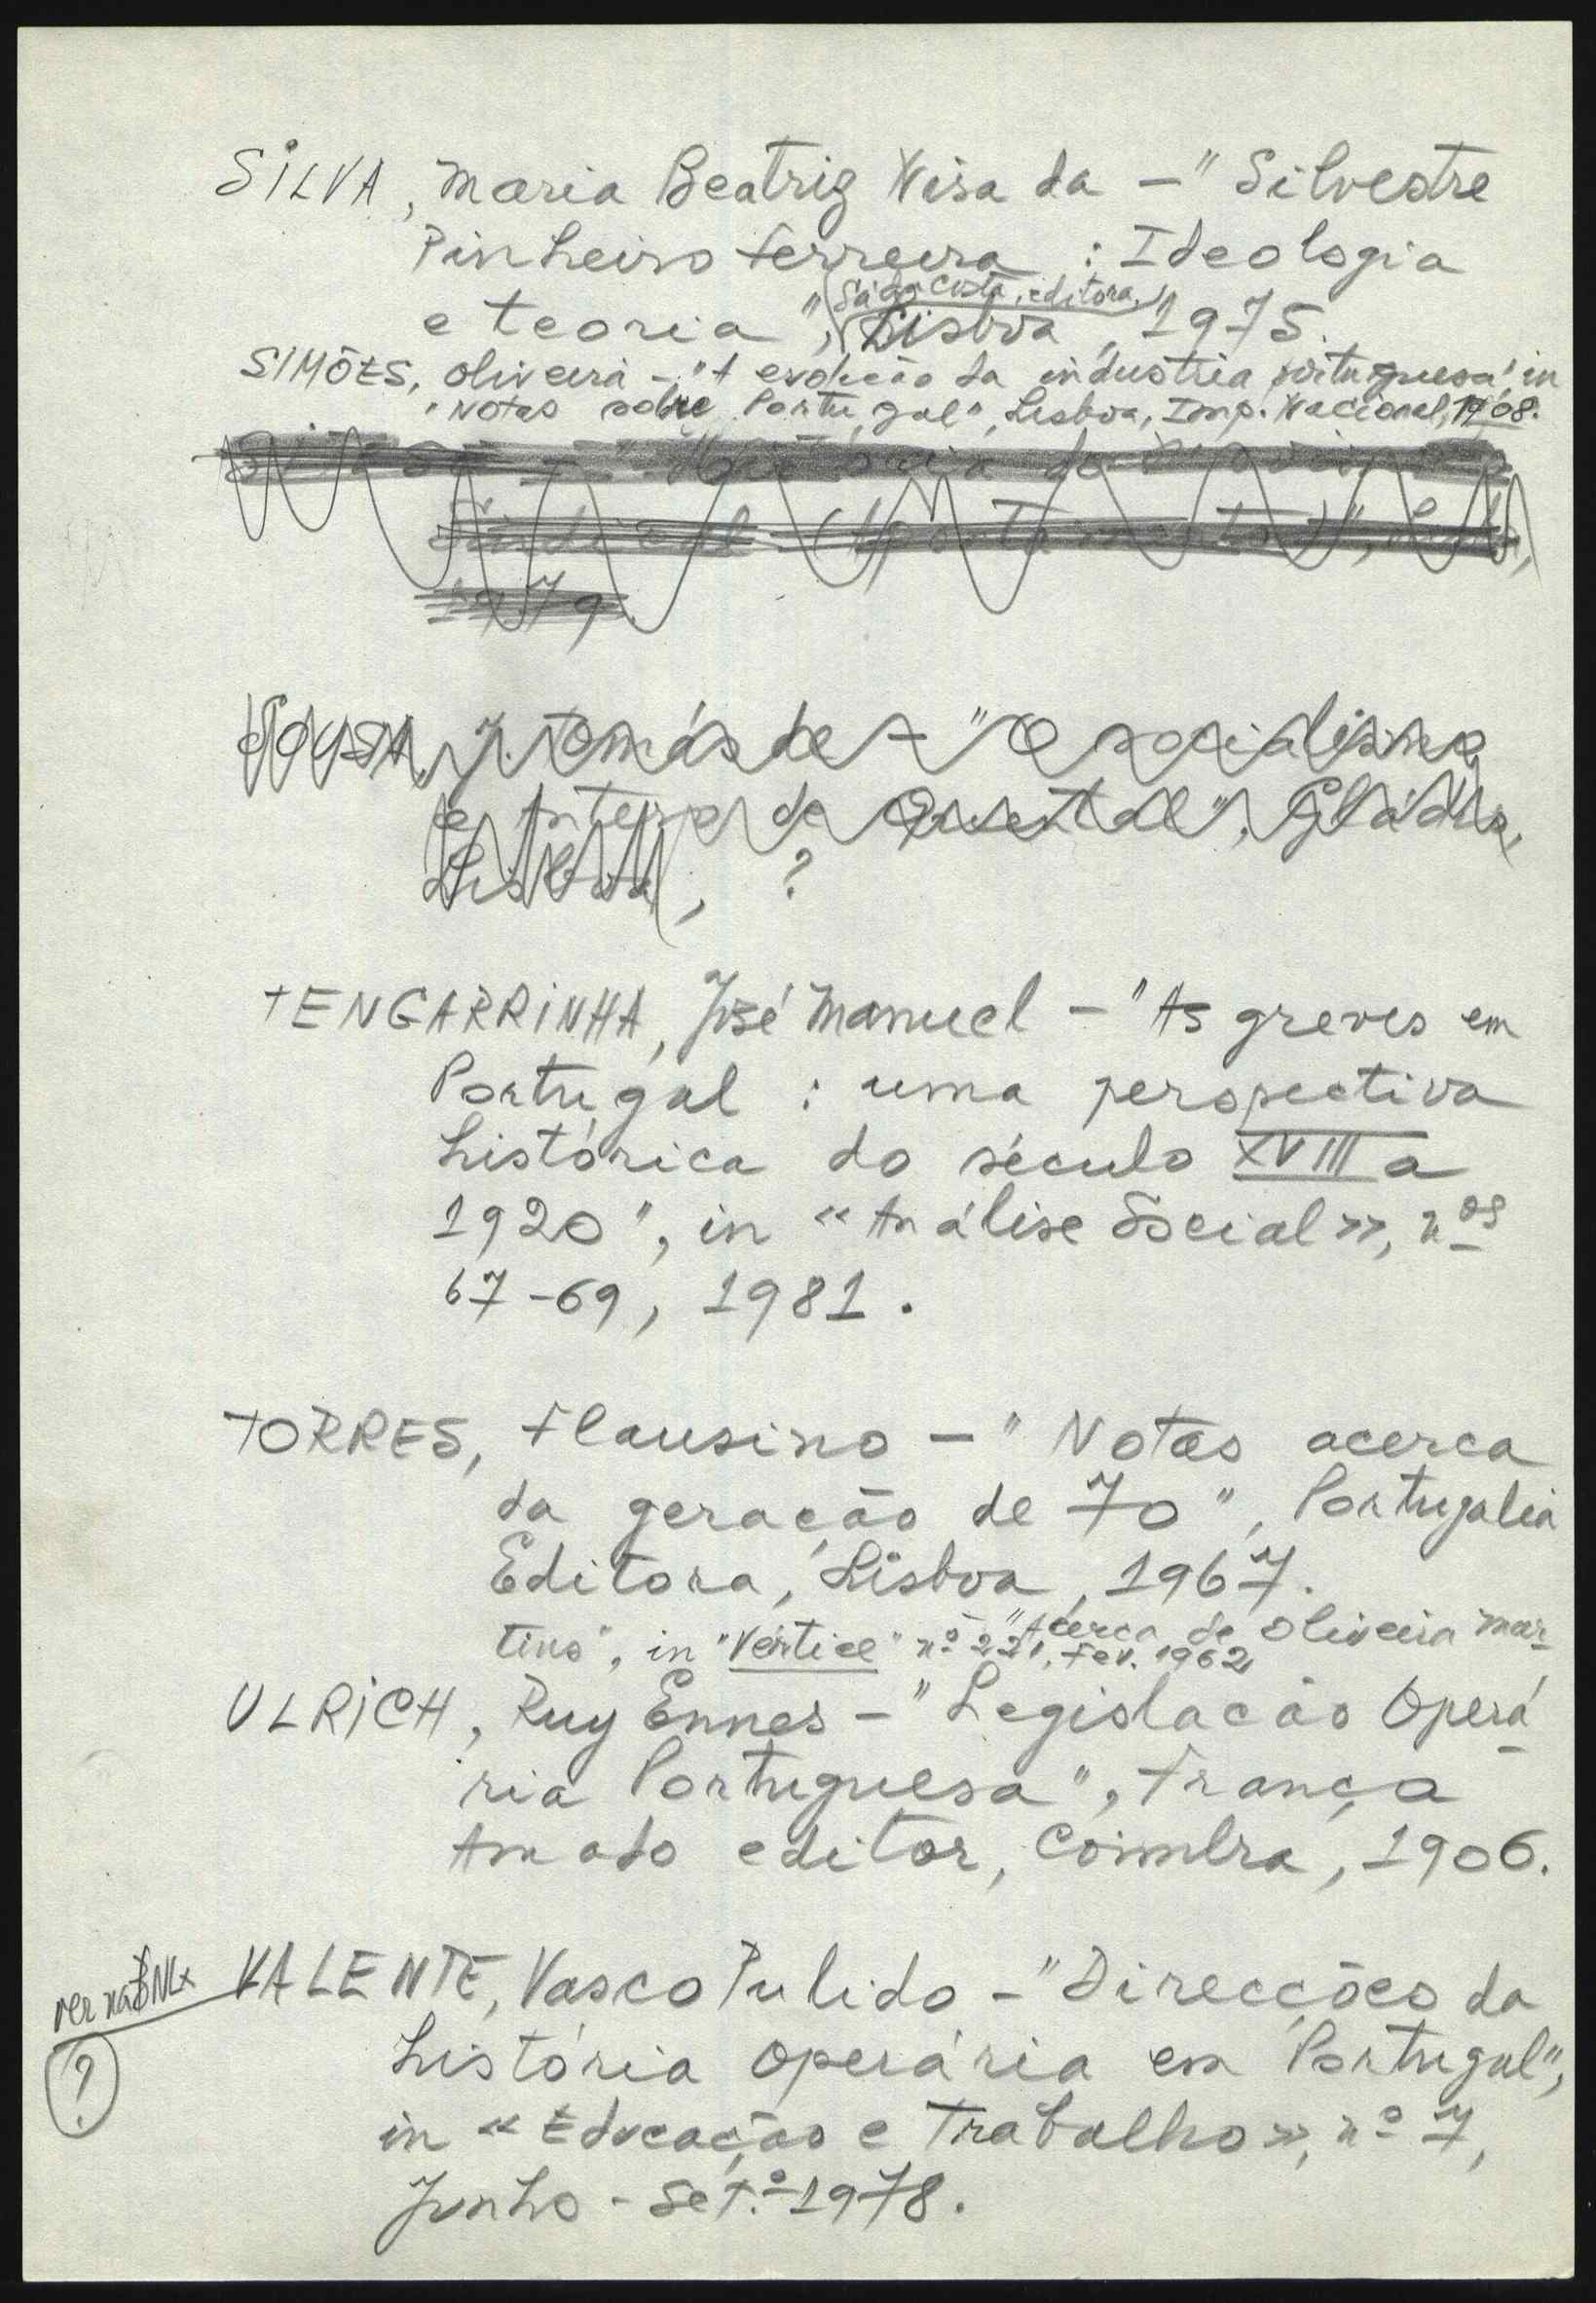 SILVA, Maria Beatriz Niza da - "Silvestre
Pinheiro Ferreira : Ideologia
Sá da Costa, editora,
e teoria", Lisboa, 1975.
SIMÕES, Oliveira - "A evolução da indústria portuguesa" in
"Notas sobre Portugal", Lisboa, Imp. Nacional, 1908.
1979.
SOUSA, J. Tomás de - "O socialismo
de Antero de Quental", Gládio,
Lisboa, ?
TENGARRINHA, José Manuel - "As greves em
Portugal : uma perspectiva
histórica do século XVIII a
1920", in «Análise Social», nos
67-69, 1981.
TORRES, Flausino - "Notas acerca
da geração de 70", Portugália
Editora, Lisboa, 1967.
- "Acerca de Oliveira Mar-
tins", in "Vértice" nº 221, Fev. 1962
ULRICH, Ruy Ennes - "Legislação Operá-
ria Portuguesa", França
Amado editor, Coimbra, 1906.
ver na BNLx
VALENTE, Vasco Pulido - "Direcções da
?
história operária em Portugal",
in «Educação e Trabalho», nº 7,
Junho - Set.º 1978.